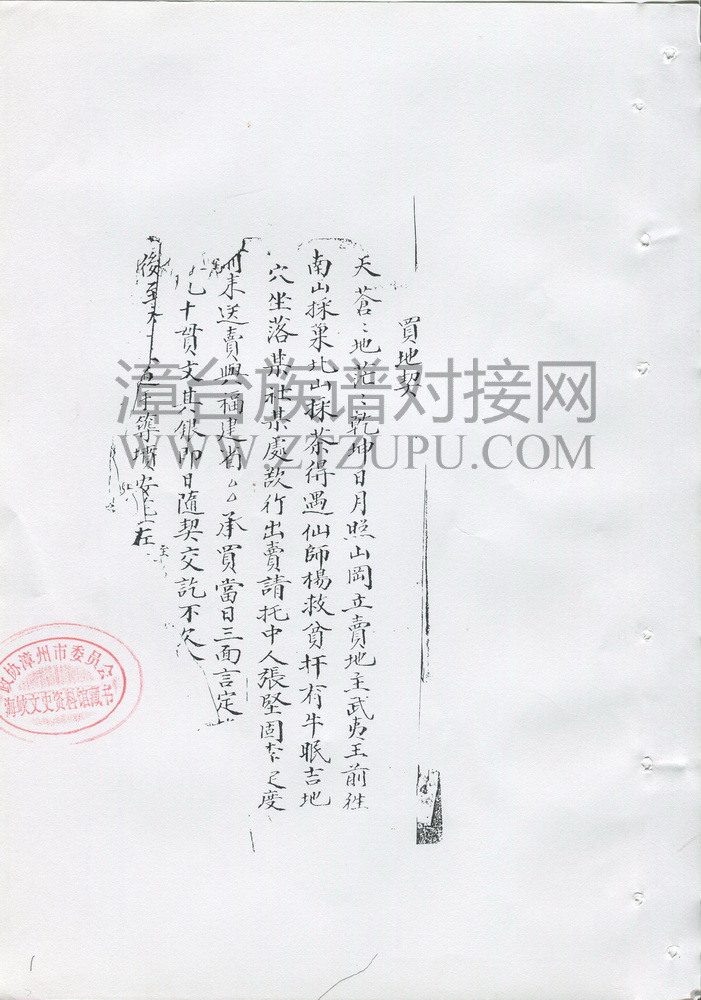 買地契
天蒼〻地茫〻乾坤日月照山岡立賣地主武夷王前往
南山採菓北山採茶得遇仙師楊救貧扦有牛眠吉地
穴坐落某社某處欲行出賣請托中人張堅固李定度
前來送賣與福建省厶厶承買當日三面言定
九十貫文其銀即日隨契交訖不欠
後至 年築墳安 在
漳台族谱对接网
WWW.ZTZUPU.COM
政协漳州市委员会
海峡文史资料馆藏书